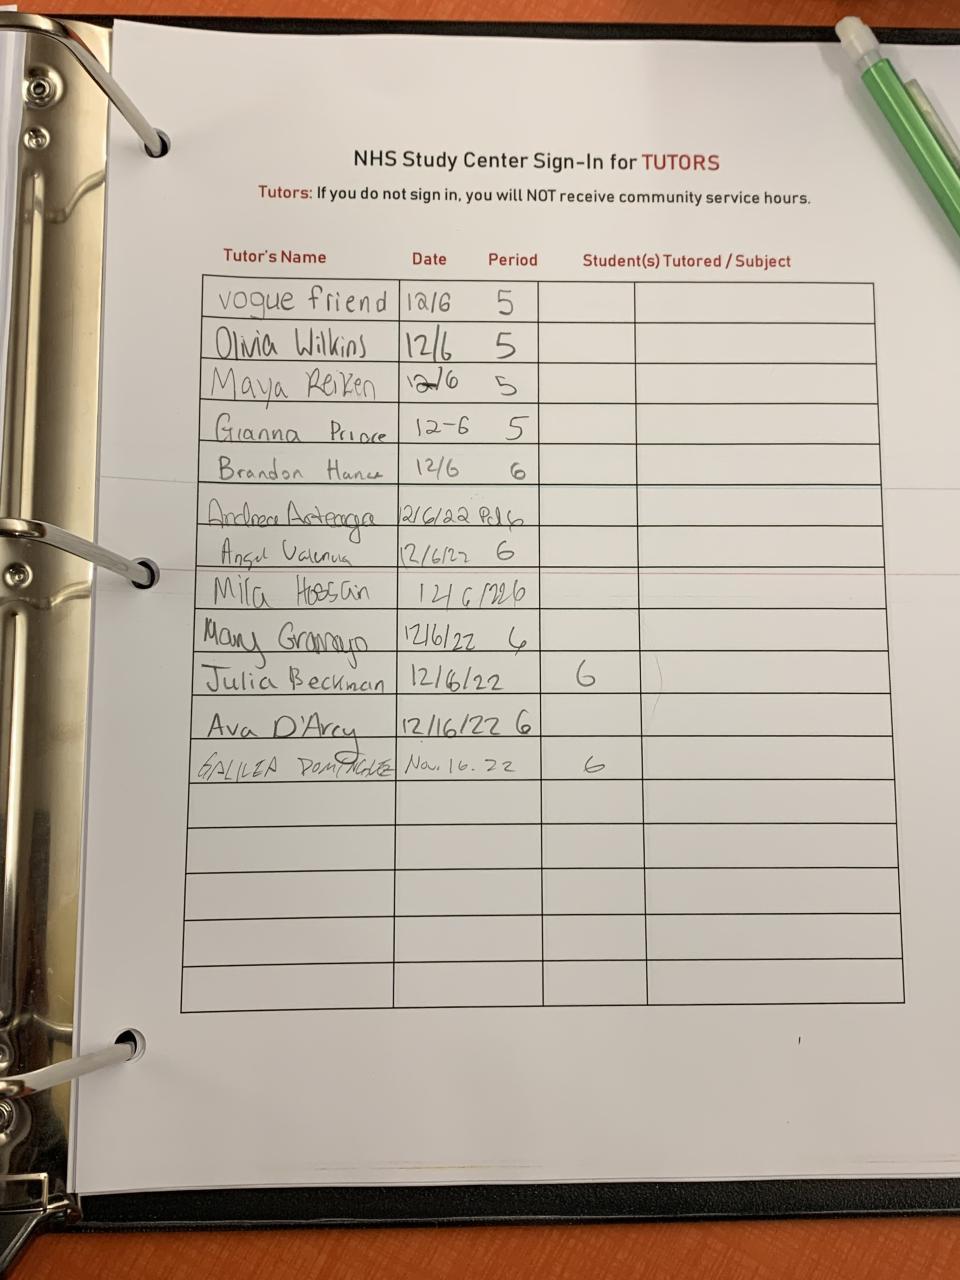 NHS Study Center Sign-In for TUTORS
Tutors: If you do not sign in, you will NOT receive community service hours.
Tutor's Name Date Period Student(s) Tutored / Subject
vogue friend 12/6 5
Olivia Wilkins 12/6 5
Maya Reiken 12/6 5
Gianna Prince 12-6 5
Brandon Hance 12/6 6
Andrea Asteaga 12/6/22 Pd 6
Angel Valencia 12/6/22 6
Mila Hossain 12/6/22 6
Mary 12/6/22 6
Julia Beckman 12/6/22 6
Ava D'Arcy 12/16/22 6
GALILEA DOMINGUEZ Nov. 16. 22 6